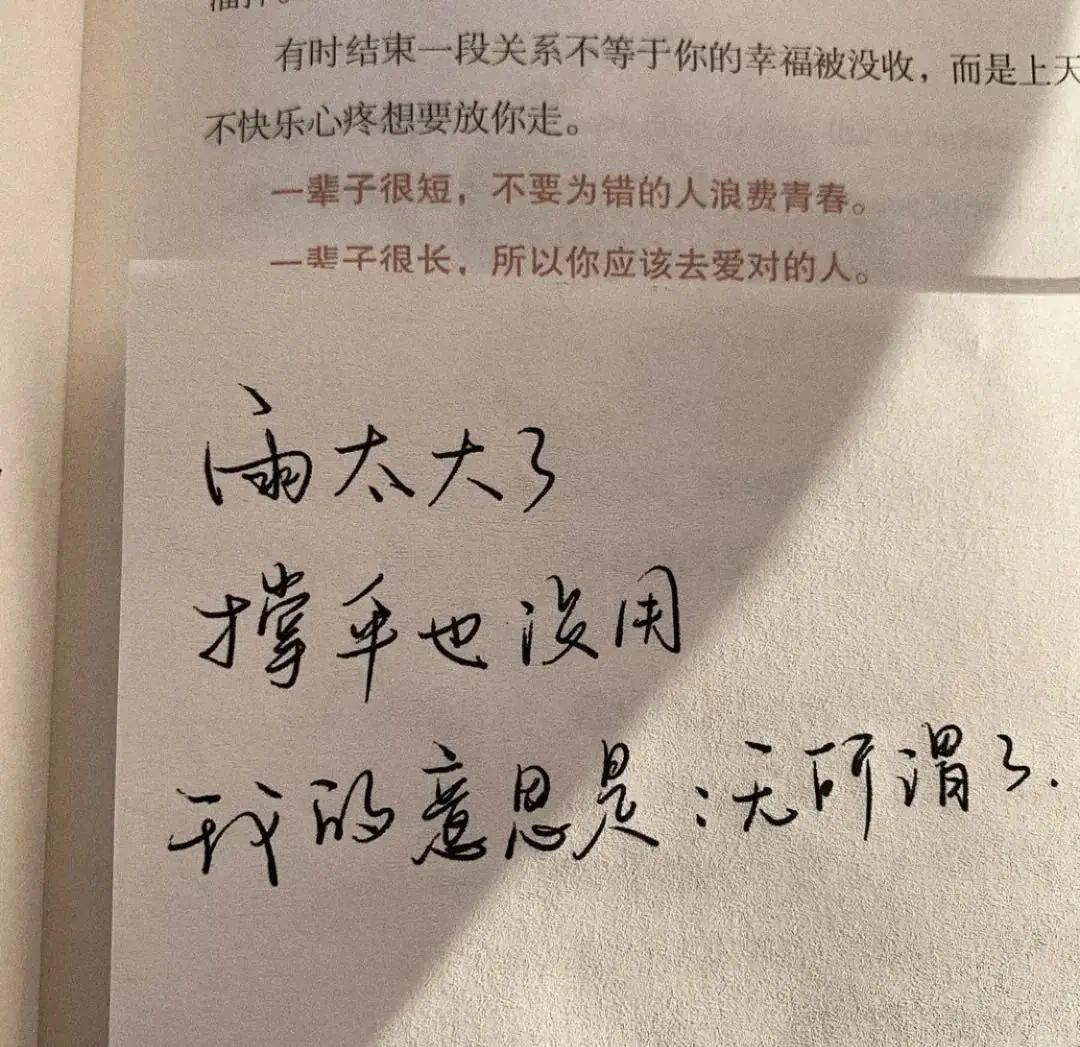 有时结束一段关系不等于你的幸福被没收，而是上天
不快乐心疼想要放你走。
一辈子很短，不要为错的人浪费青春。
一辈子很长，所以你应该去爱对的人。
雨太大了
撑伞也没用
我的意思是：无所谓了.